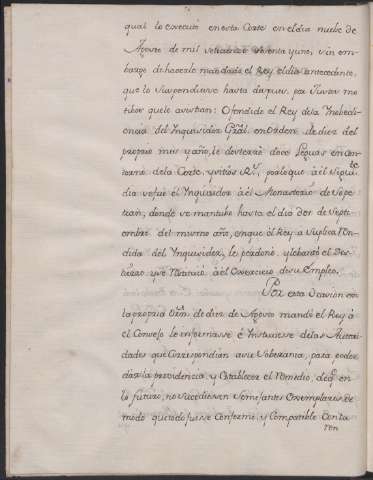 qual lo executó en esta Corte en el dia nuebe de
Agosto de mil setecientos sesenta y uno, sin em-
bargo de haverle mandado el Rey el dia antecedente,
que lo suspendiesse hasta despues, por Justos mo-
tibos que le asistian: Ofendido el Rey de la Ynobedi-
encia del Ynquisidor Gral. en Orden de diez del
proprio mes y año, le desterró doce Leguas en con-
torno de la Corte, y sitios Rs., por lo que à él siguien.te
dia se fué el Ynquisidor à él Monasterio de Sope-
tran, donde se mantubo hasta el dia dos de Septi-
embre del mismo año, en que el Rey a Suplica ren-
dida del Ynquisidor, le perdonó, y lebantó el Des-
tierro y se restituió à él exercicio de su Empleo.
Por esta Ocasion con
la propria Orn. de diez de Agosto mandó el Rey à
el Consejo le informasse è Ynstruiesse de las Autori-
dades que correspondian a su Soberania, para poder
dar la providencia, y establecer el remedio, de q. en
lo futuro, no sucediesen semejantes exemplares, de
modo que todo fuesse Conforme, y Compatible con la
ren